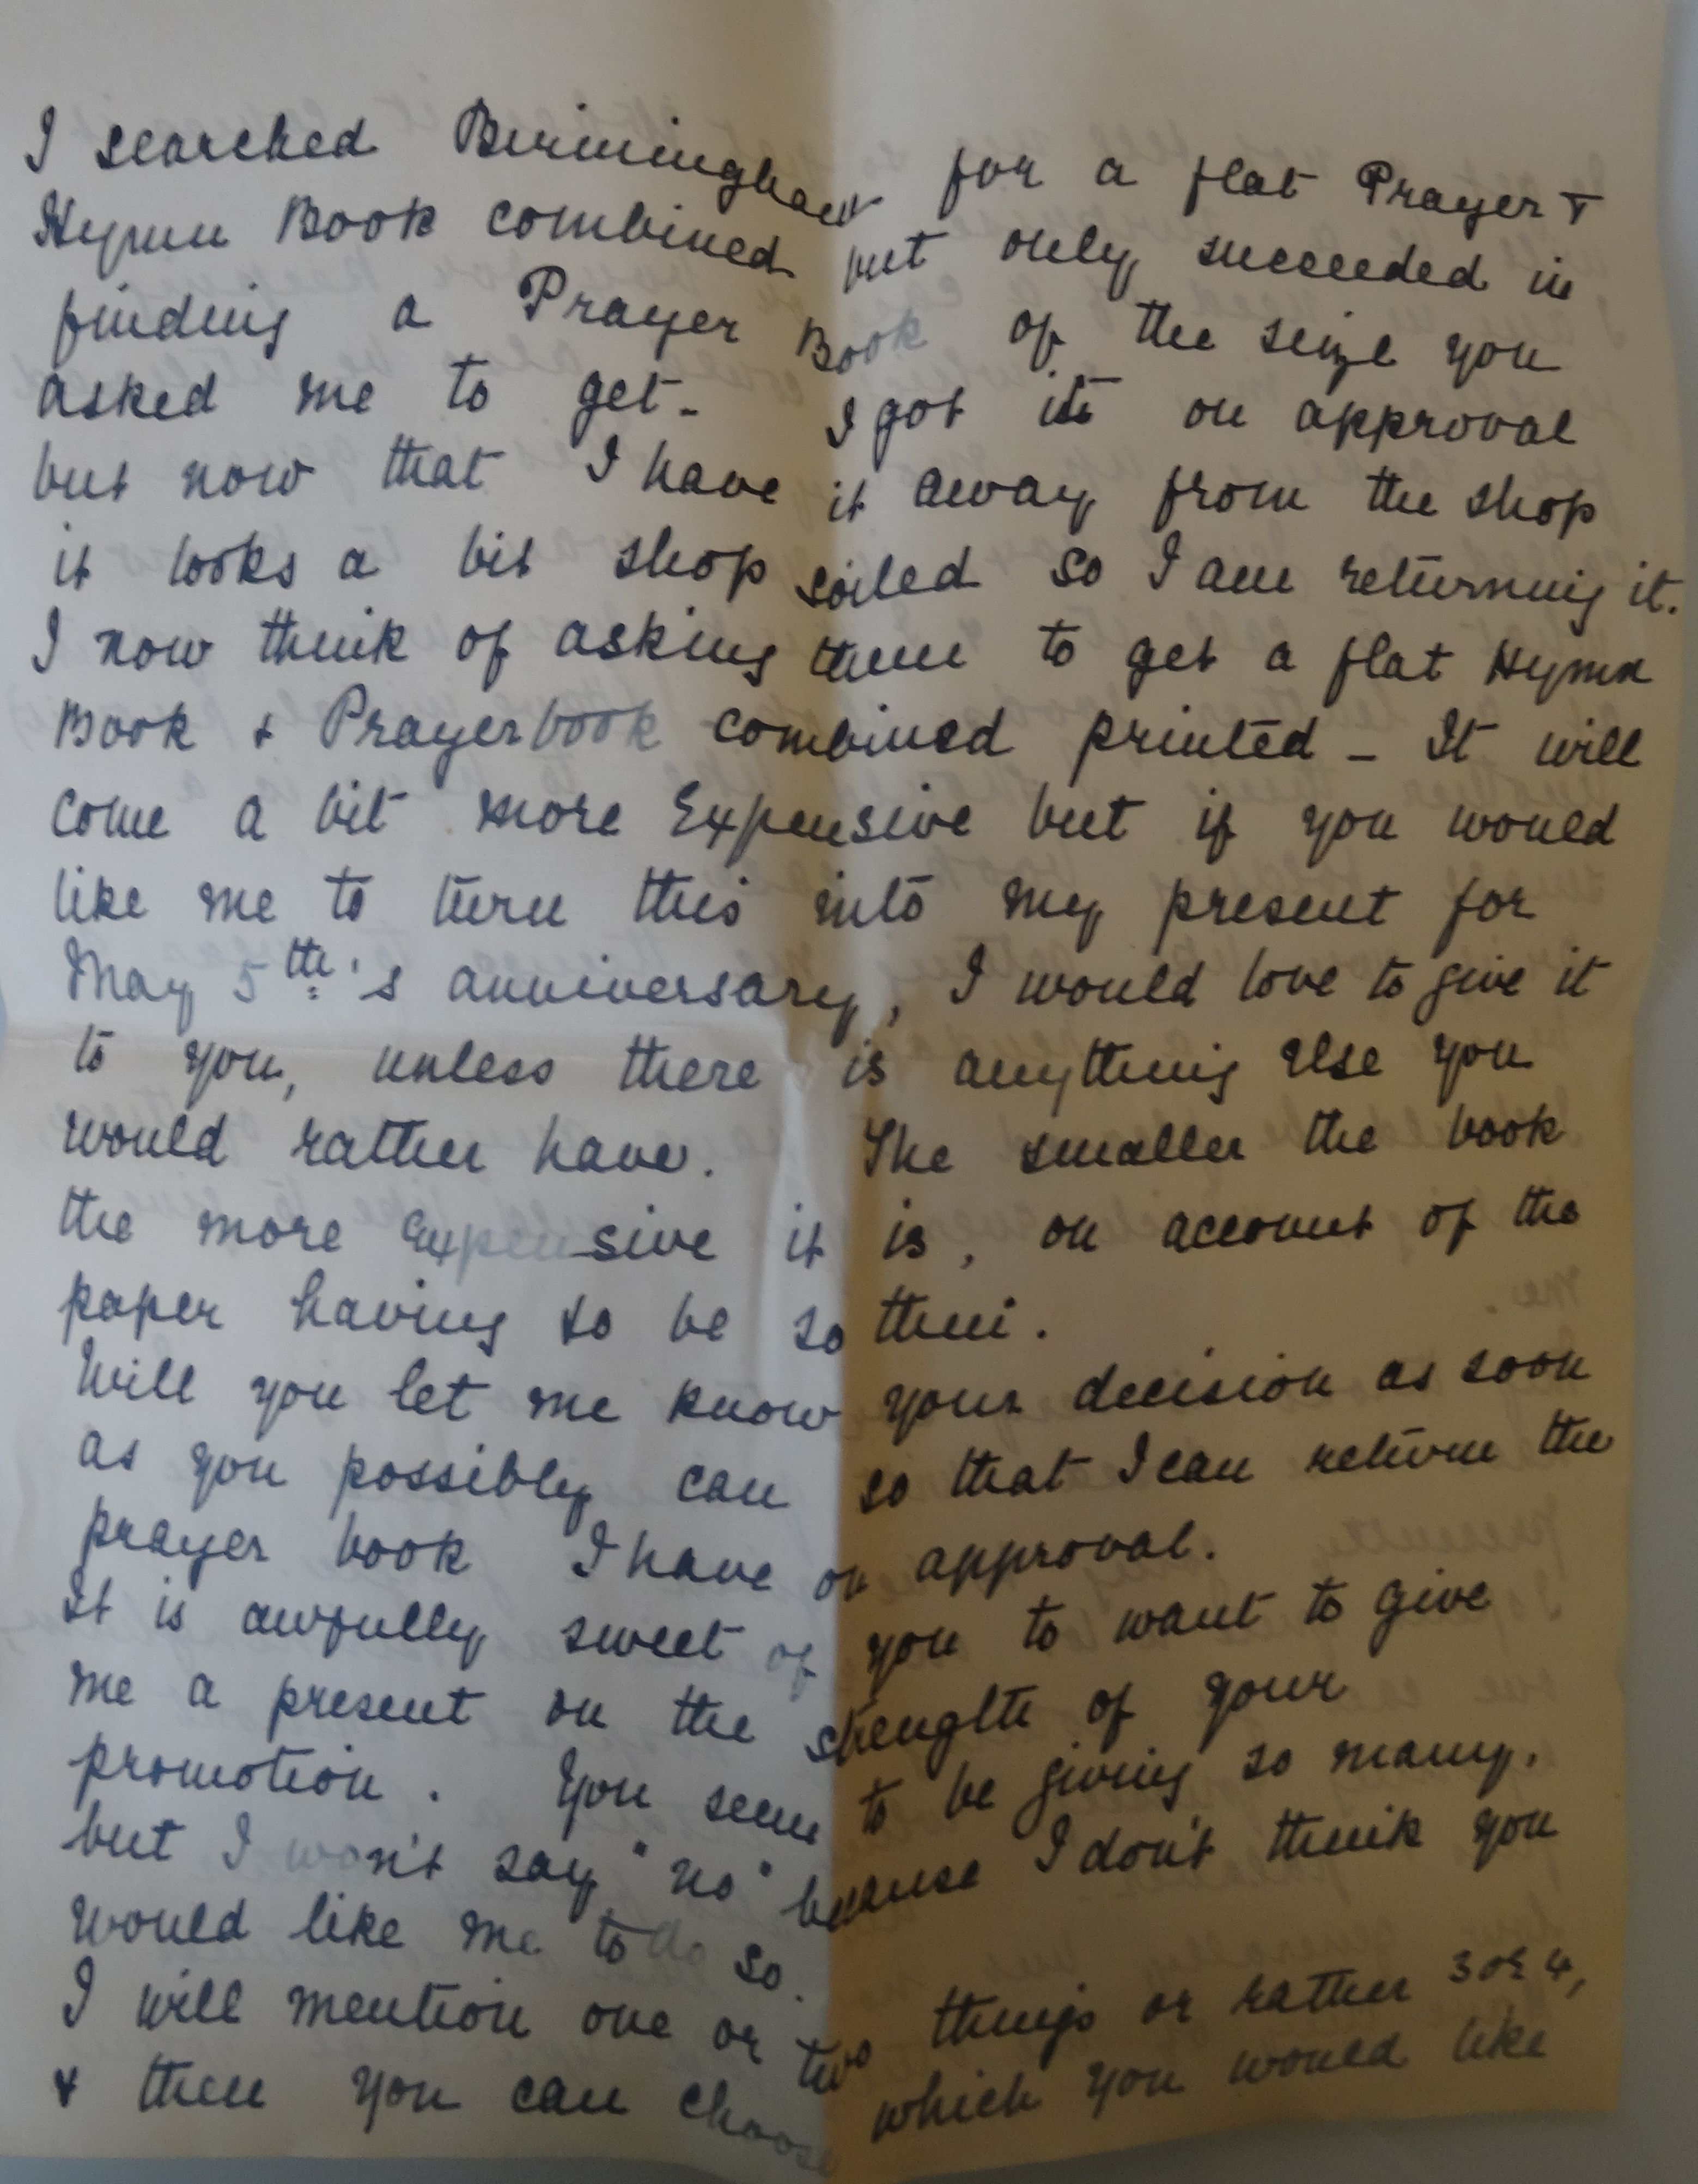 I searched Birmingham for a flat Prayer +
Hymn Book combined but only succeeded in
finding a Prayer Book of the seize you
asked me to get - I got it on approval
but now that I have it away from the shop
it looks a bit shop soiled so I am returning it.
I now think of asking them to get a flat Hymn
Book + Prayerbook combined printed - It will
come a bit more Expensive but if you would
like me to turn this into my present for
May 5th's anniversary, I would love to give it
to you, unless there is anything else you
would rather have. The smaller the book
the more Expensive it is, on account of the
paper having to be so thin.
Will you let me know your decision as soon
as you possibly can so that I can return the
prayer book I have on approval.
It is awfully sweet of you to want to give
me a present on the strenglth of your
promotion. You seem to be giving so many,
but I won't say "no" because I don't think you
would like me to do so.
I will mention one or two things or rather 3 or 4,
+ then you can choose which you would like